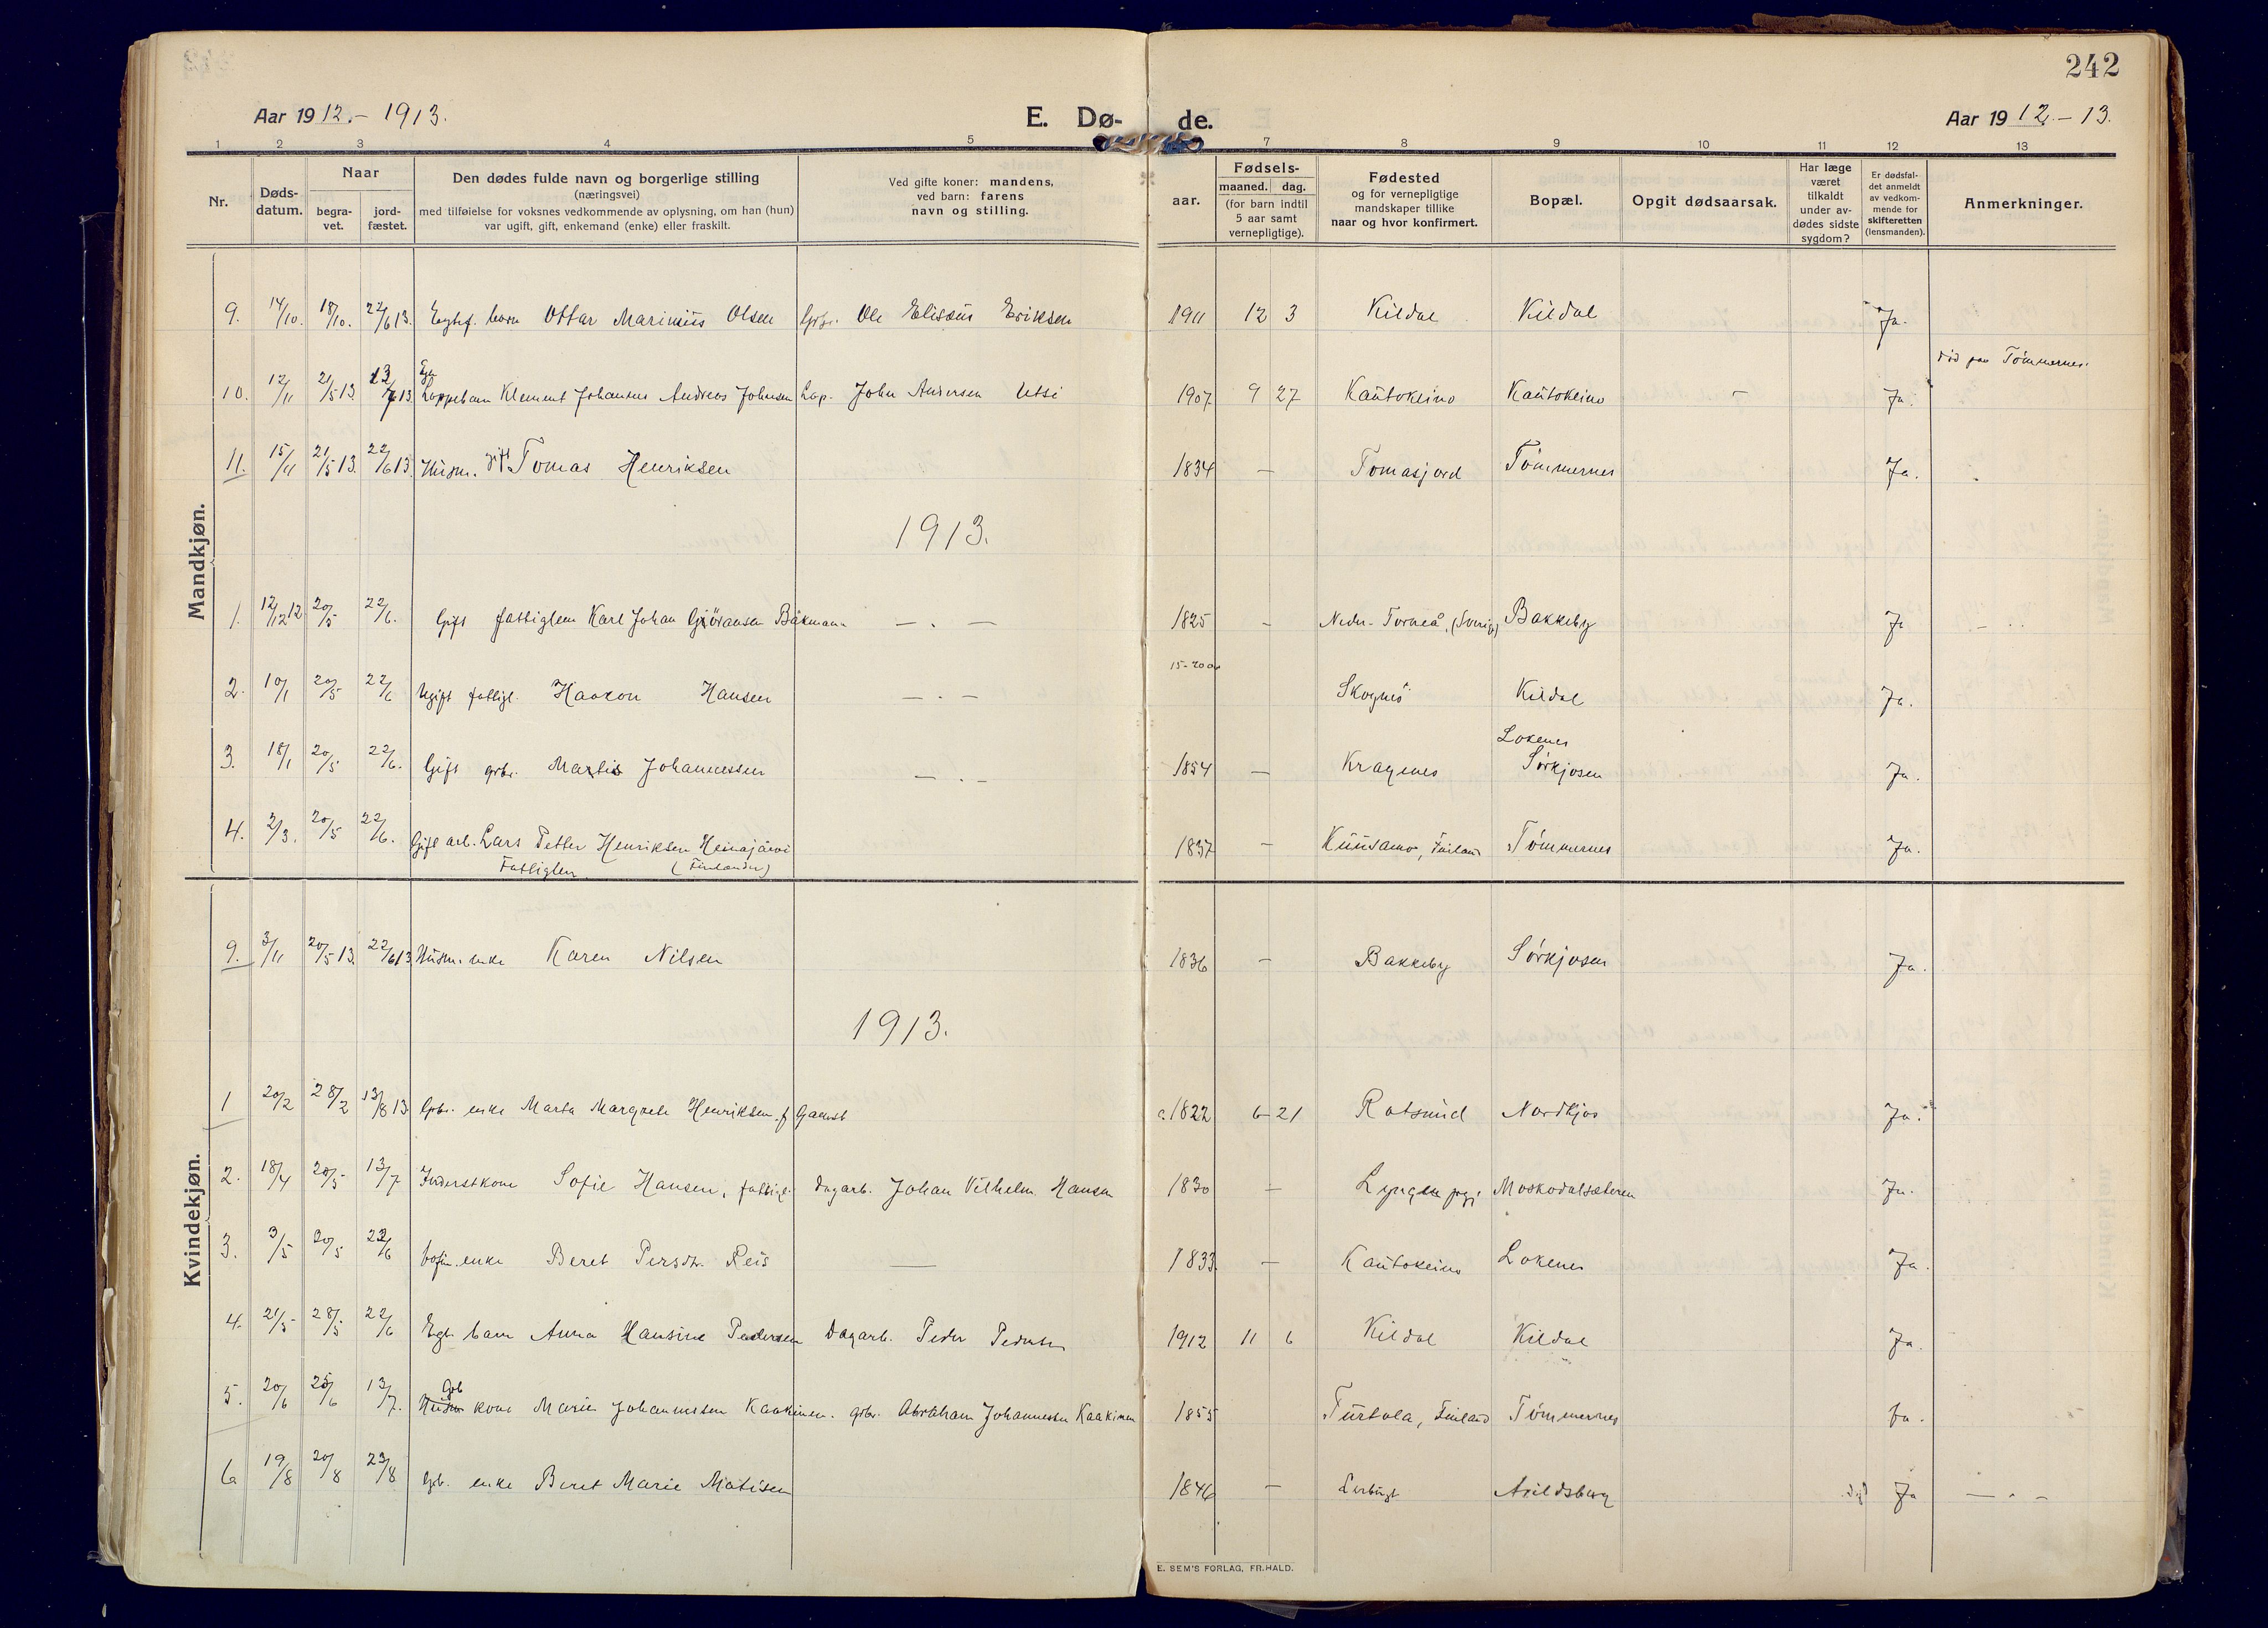 242
Aar 1912. - 1913. E. Dø- de. Aar 1912. - 13.
1 2 3 4 5 7 8 9 10 11 12 13
Nr. Døds-datum. Naar begra-vet. jord-fæstet. Den dødes fulde navn og borgerlige stilling (næringsvei) med tilføielse for voksnes vedkommende av oplysning, om han (hun) var ugift, gift, enkemand (enke) eller fraskilt. Ved gifte koner: mandens, ved barn: farens navn og stilling. aar. Fødsels- maaned. dag. (for barn indtil 5 aar samt vernepligtige). Fødested og for vernepligtige mandskaper tillike naar og hvor konfirmert. Bopæl. Opgit dødsaarsak. Har læge været tilkaldt under av-dødes sidste sygdom? Er dødsfal-det anmeldt av vedkom-mende for skifteretten (lensmanden). Anmerkninger.
Mandkjøn.
9. 14/10. 18/10. 22/6 13. Egtef. barn Ottar Marinius Olsen Grbr. Ole Elisæus Eriksen 1911 12 3 Kildal Kildal Ja.
død paa Tømmernes.
10. 12/11 21/5 13. 13/7 13. Egt. Lappebarn Klement Johannes Andreas Johnsen Lap. John Andersen Utsi 1907 9 27 Kautokeino Kautokeino - Ja.
11. 15/11 21/5 13. 22/6 13. Husm. gift Tomas Henriksen 1834 - Tomasjord Tømmernes Ja.
1913.
1. 12/12 12 20/5 22/6. Gift fattiglem Karl Johan Gjøransen Bäkmann - . - 1825 - Neder-Torneå, (Sverige) Bakkeby Ja
15-20 06
2. 10/1 20/5 22/6 Ugift fattigl. Haakon Hansen - . - Skognes Kildal Ja.
Lokenes
3. 18/1 20/5 22/6. Gift grbr. Martis Johannessen - . - 1854 - Kragenes Sørkjosen Ja.
4. 2/3. 20/5 22/6. Gift arb. Lars Petter Henriksen Heinajärvi 1837 - Kuusamo, Finland Tømmernes Ja.
Fattiglem (Finlænder)
Kvindekjøn.
9. 3/11 20/5 13. 22/6 13 Husm. enke Karen Nilsen 1836 - Bakkeby Sørkjosen Ja.
1913.
1 20/2 28/2 13/8 13 Grbr. enke Marta Margrete Henriksen f. Gamst 1822 6 21 Rotsund Nordkjos Ja.
2. 18/4 20/5 13/7 Inderstkone Sofie Hansen, fattigl. Dagarb. Johan Vilhelm Hansen 1830 - Lyngen prgj. Moskodalsæteren Ja.
3. 3/5 20/5 22/6 enke Beret Persdtr. Reis — 1833. - Kautokeino Lokenes Ja.
4. 21/5 28/5 22/6 Egt. barn Anna Hansine Pedersen Dagarb. Peder Pedersen 1912 11 6 Kildal Kildal Ja.
5. 20/6 25/6 13/7. Grb Husm kone Marie Johannessen Kaakinen. grbr. Abraham Johannessen Kaakinen 1855 Turtola, Finland Tømmernes Ja.
6 19/8 20/8 23/8 Grb. enke Beret Marie Matisen 1846 - Lerbugt Arildsberg Ja - . -
E. SEM'S FORLAG, FR.HALD.